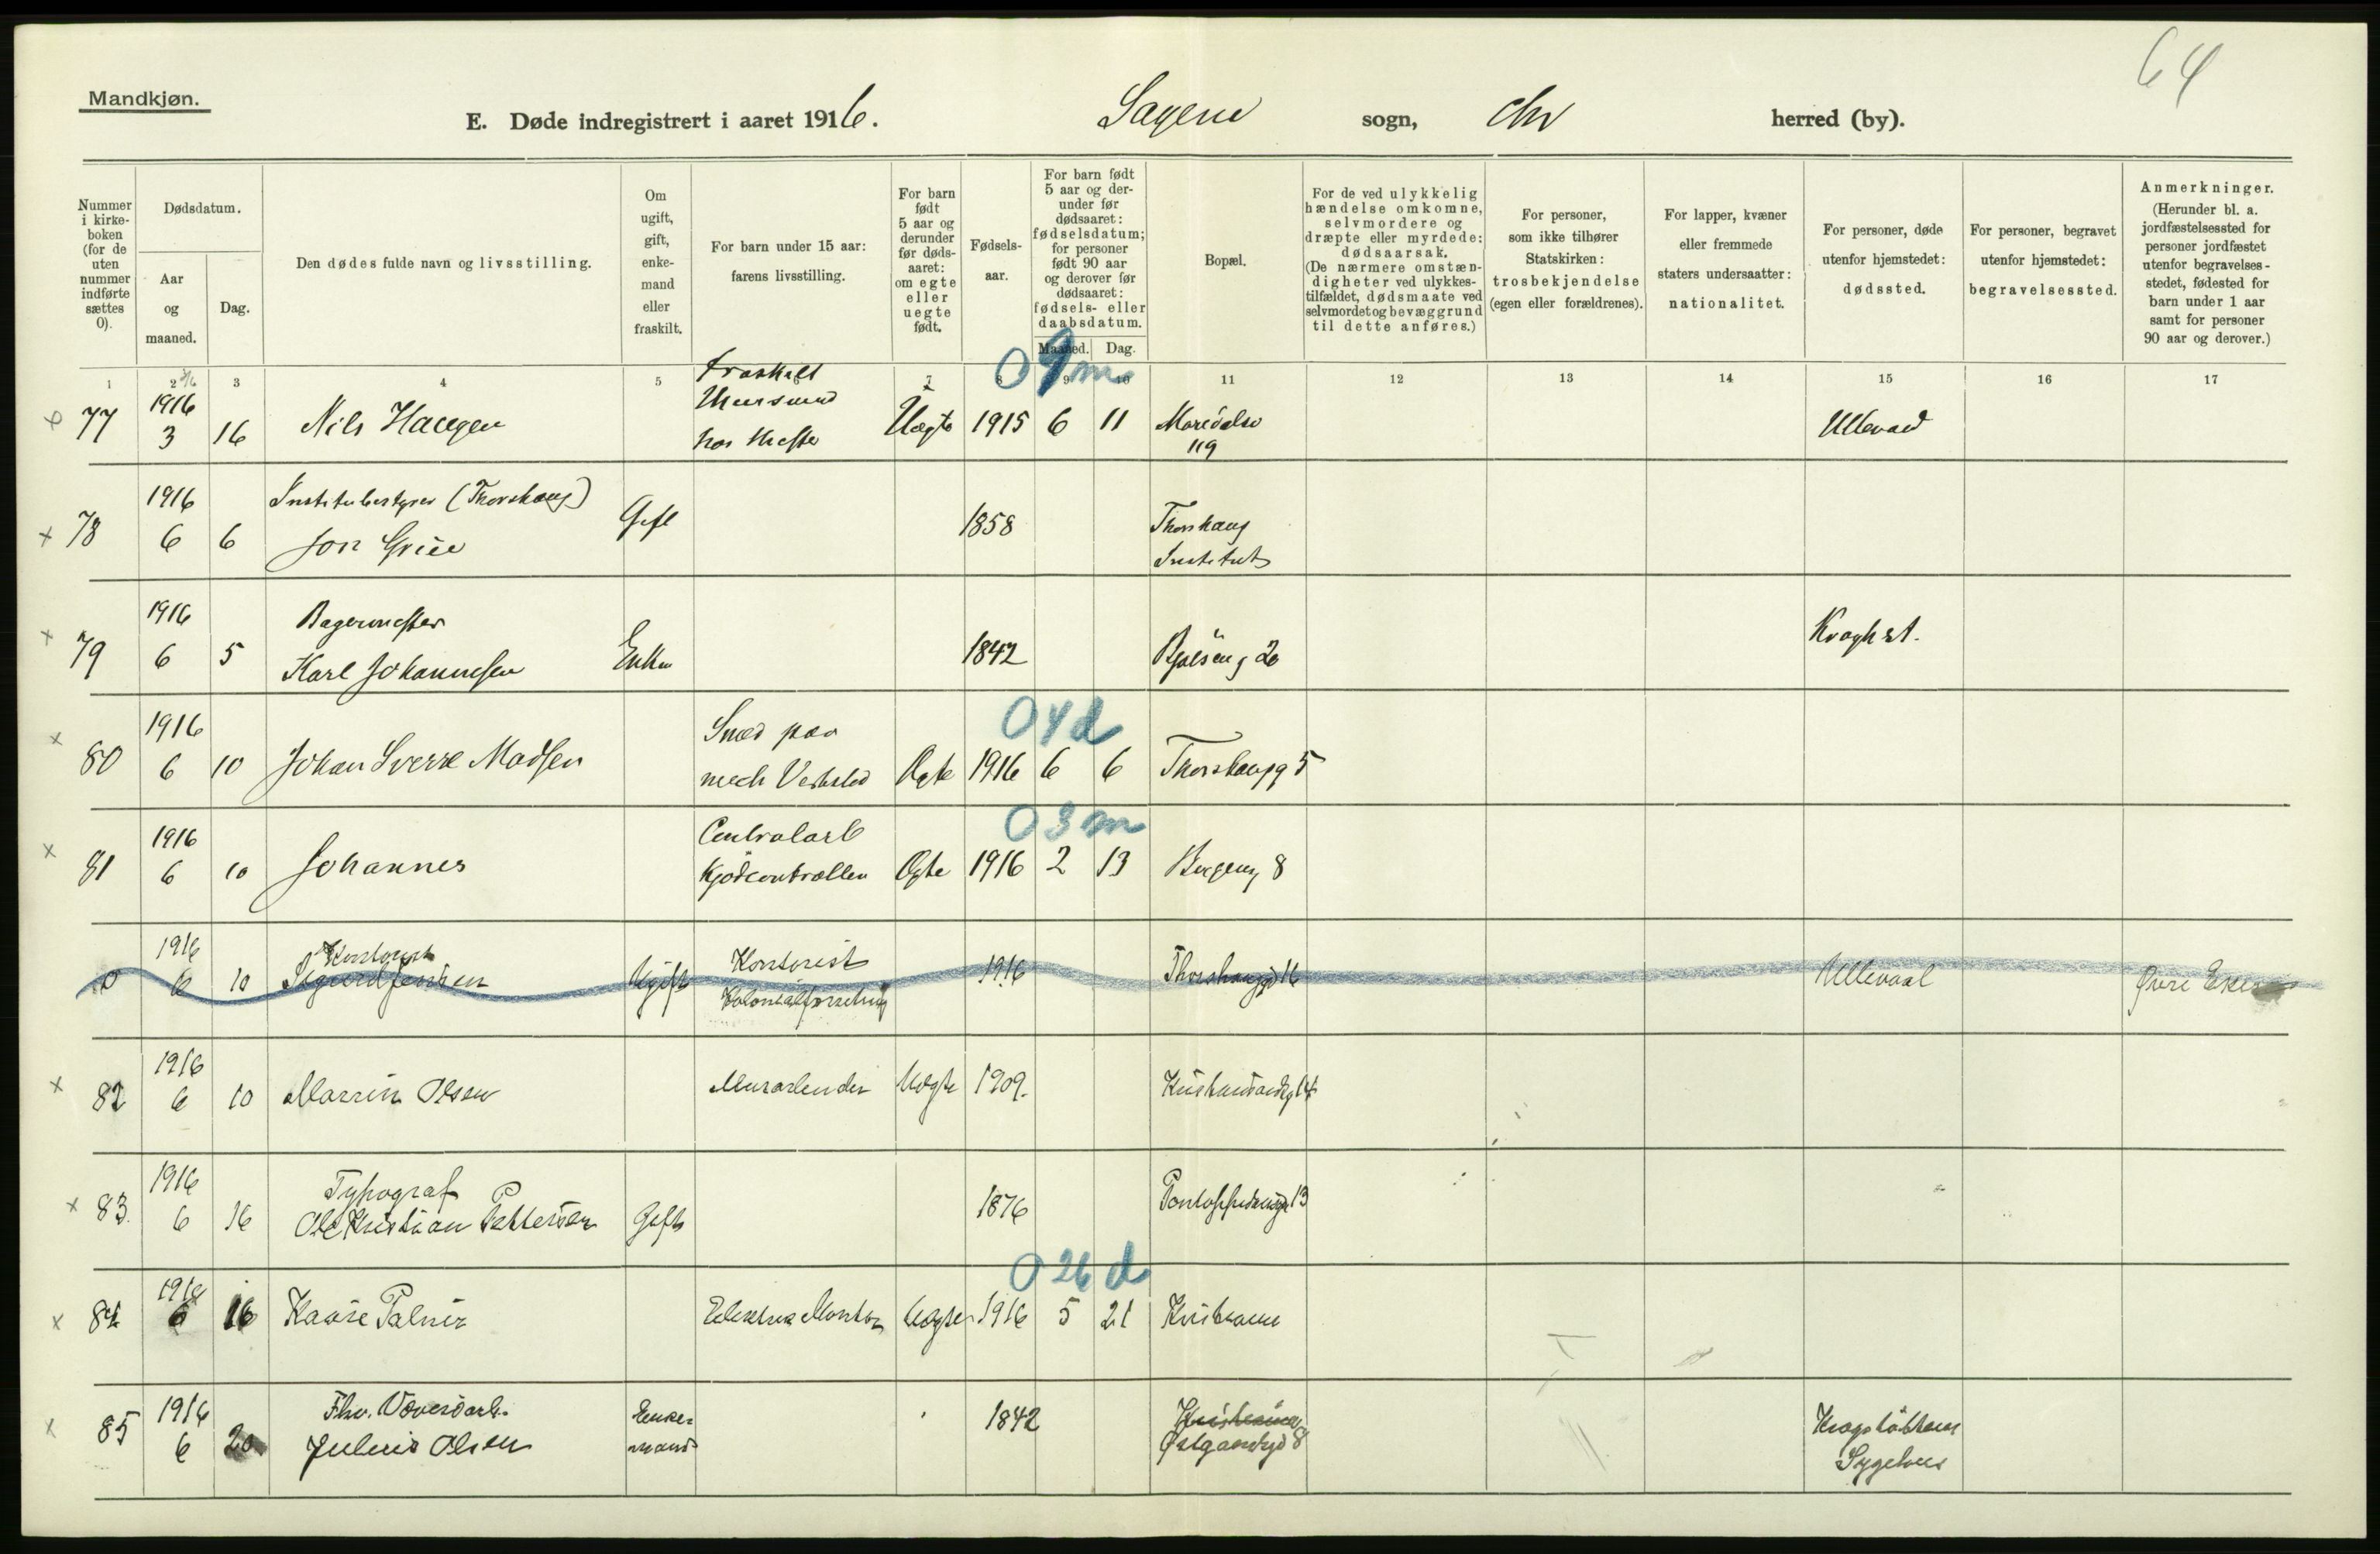 64
Mandkjøn.
E. Døde indregistrert i aaret 1916. Sagene sogn, Chr herred (by).
Nummer i kirke-boken (for de uten nummer indførte sættes 0).
Dødsdatum.
Aar og maaned.
Dag.
Den dødes fulde navn og livsstilling.
Om ugift, gift, enke-mand eller fraskilt.
For barn under 15 aar: farens livsstilling.
For barn født 5 aar og derunder før døds-aaret: om egte eller uegte født.
Fødsels-aar.
For barn født 5 aar og der-under før dødsaaret: fødselsdatum; for personer født 90 aar og derover før dødsaaret: fødsels- eller daabsdatum.
Maaned. Dag.
Bopæl.
For de ved ulykkelig hændelse omkomne, selvmordere og dræpte eller myrdede: dødsaarsak. (De nærmere omstæn-digheter ved ulykkes-tilfældet, dødsmaate ved selvmordet og bevæggrund til dette anføres.)
For personer, som ikke tilhører Statskirken: trosbekjendelse (egen eller forældrenes).
For lapper, kvæner eller fremmede staters undersaatter: nationalitet.
For personer, døde utenfor hjemstedet: dødssted.
For personer, begravet utenfor hjemstedet: begravelsessted.
Anmerkninger. (Herunder bl. a. jordfæstelsessted for personer jordfæstet utenfor begravelses-stedet, fødested for barn under 1 aar samt for personer 90 aar og derover.)
1 2 3 4 5 6 7 8 9 10 11 12 13 14 15 16 17
Fraskilt 0 9 m
77 1916 3 16 Nils Haugen hos Uegte 1915 6 11 Maridalsv 119 Ullevaal
78 1916 6 6 Institutbestyrer (Thorshaug)
Jon Grieu Gift 1858 Thorshaug
Institut
79 1916 6 5 Bagermester
Karl Johannesen Enkem 1842 Bjølseng 26 Kroghst.
0 4 d
80 1916 6 10 Johan Sverre Madsen Smed paa
mech Verksted Egte 1916 6 6 Thorshaugg 5
0 3 m
81 1916 6 10 Johannes
Kjødcontrollen Egte 1916 2 13 Bergensg 8
0 1916 6 10 Kontorist
Sigurd Jensen Ugift Kontorist
Kolonialforretning 1916 Thorshauggd 16 Ullevaal Øvre Eker
82 1916 6 10 Marrin Olsen Murarbeider Uegte 1909. Kristiansandsg 14
83 1916 6 16 Typograf
Ole Kristian Pettersen Gift 1876 Pontoppidansgt 13
0 26 d
84 1916 6 16 Kaare Palmer Elektrisk Montør Uegte 1916 5 21 Kristiania
85 1916 6 20 Fhv. Væveriarb.
Julius Olsen Enke-
mand 1842 Kristiania
Østgaardsgd 8 Krogstøtten
Sygehus